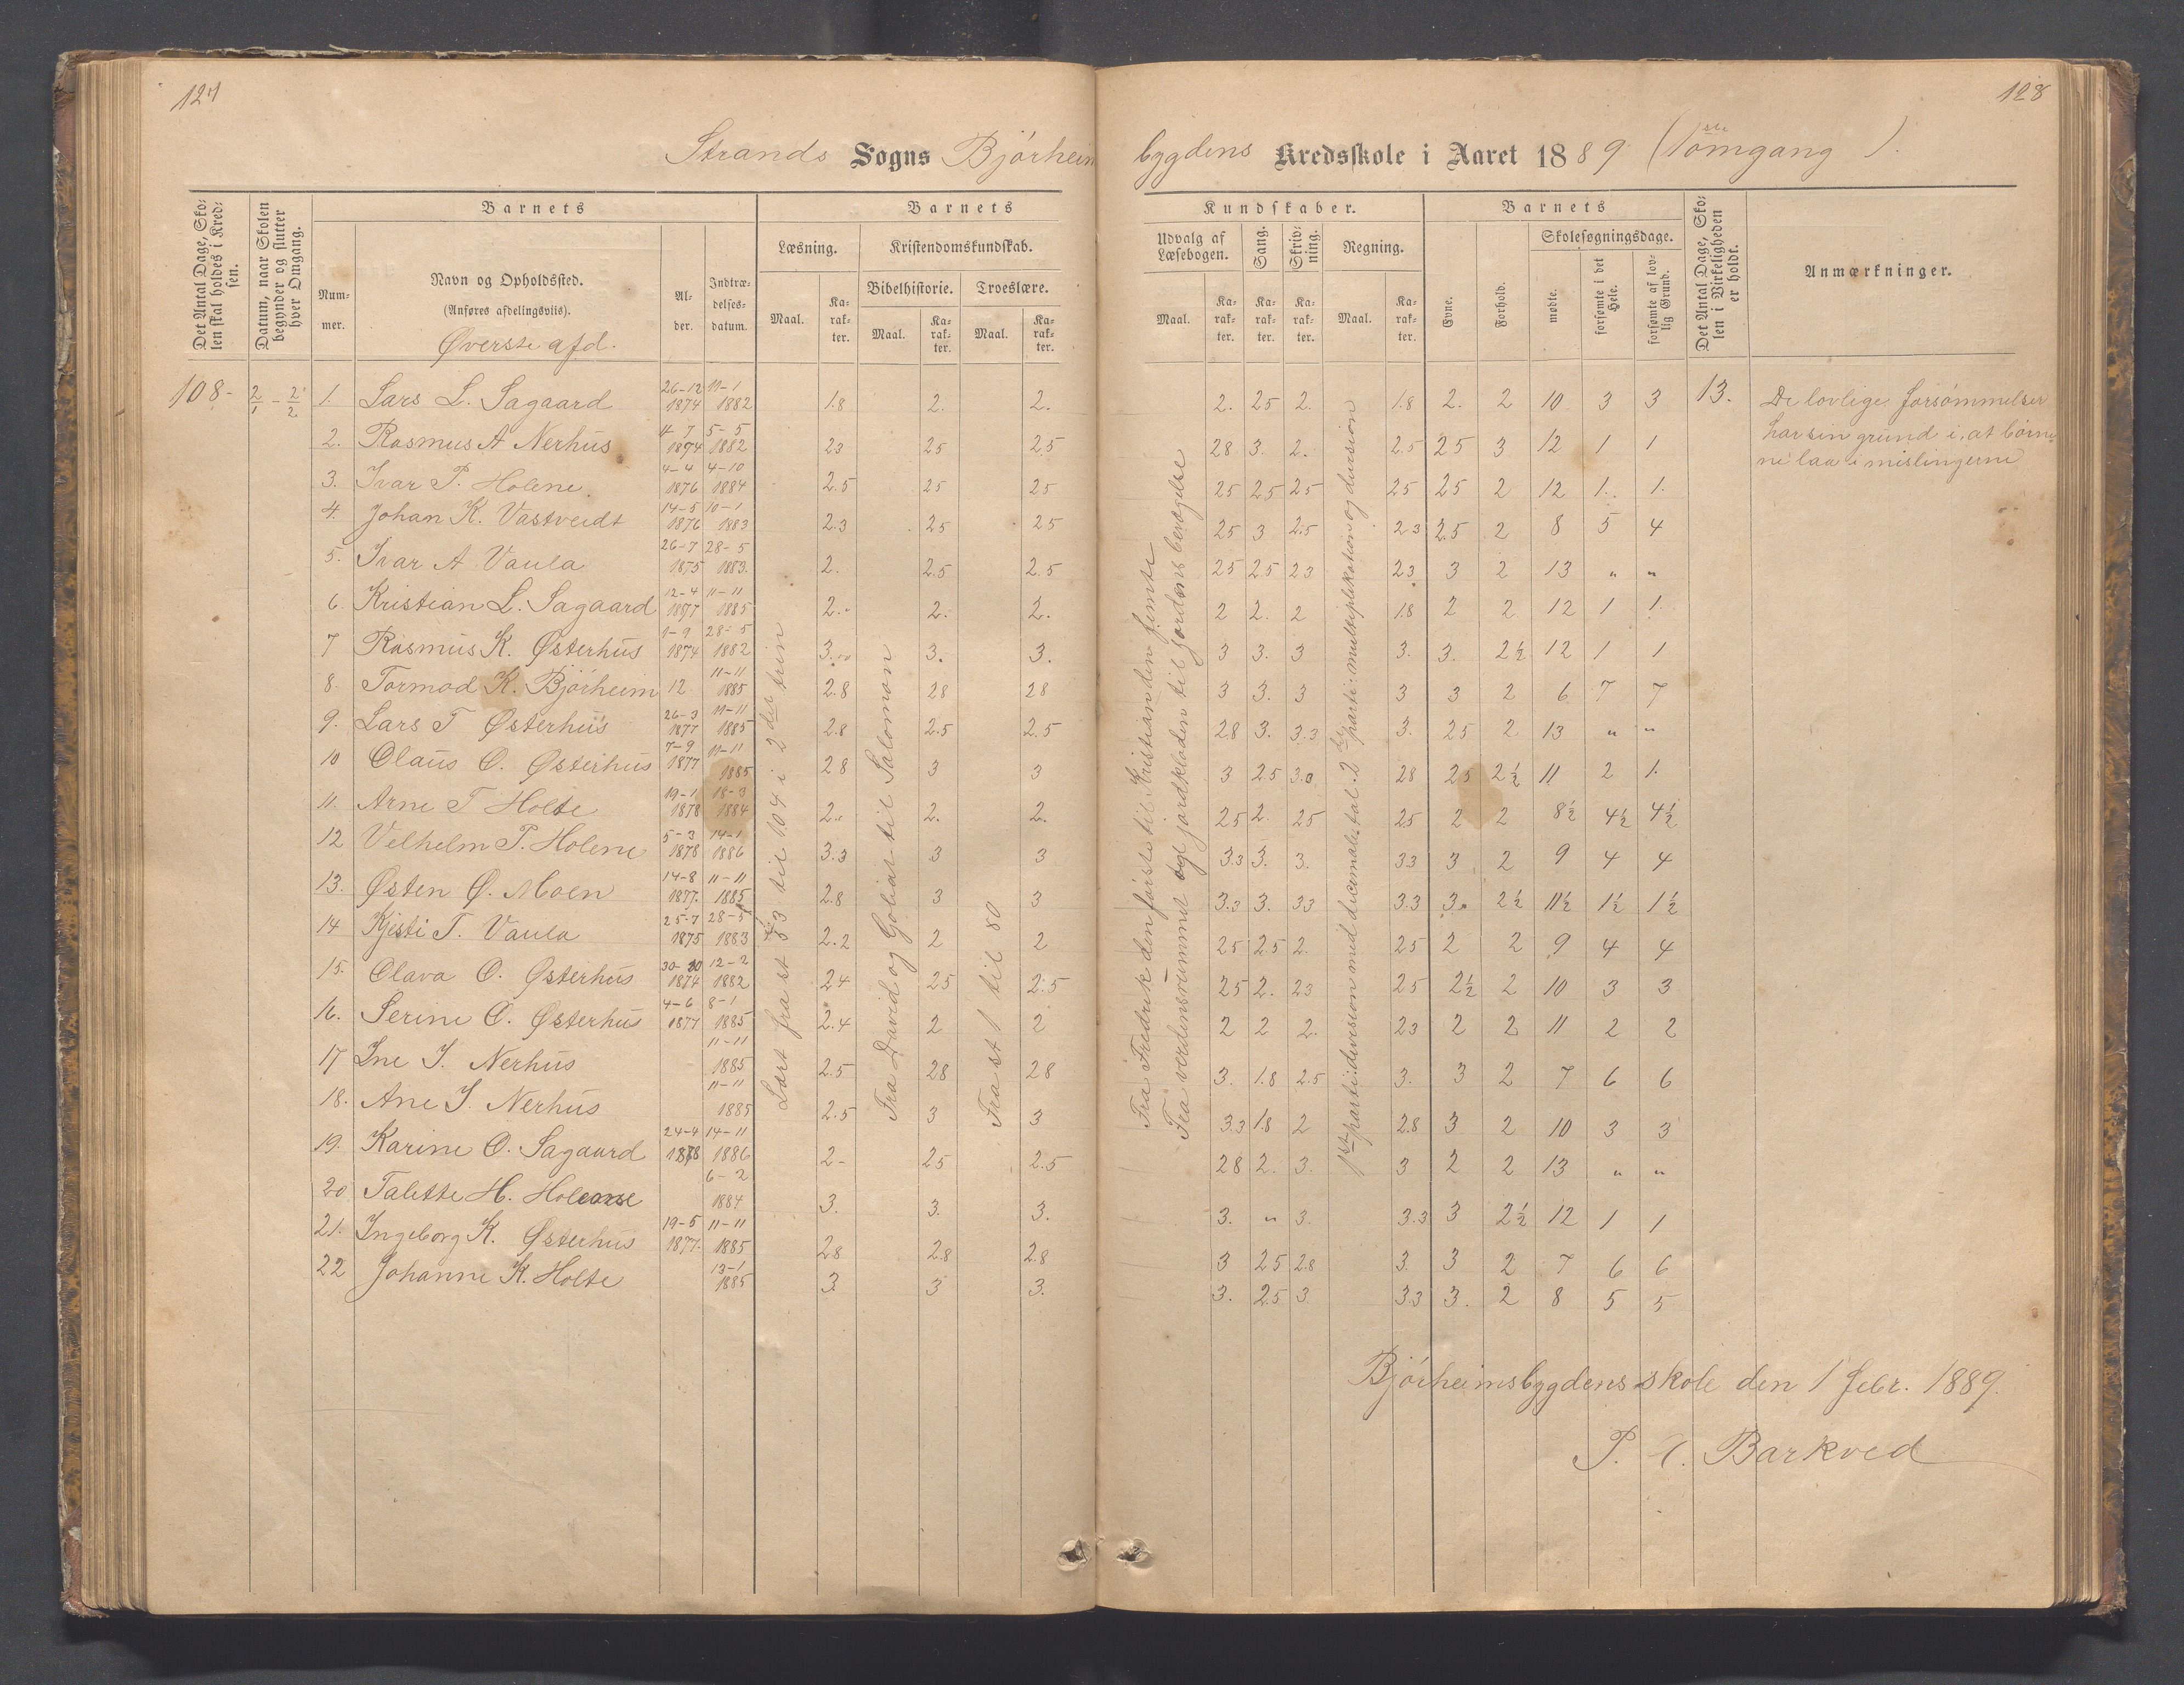 127
128
Strands Sogns Bjørheimbygdens Kredsskole i Aaret 1889 (1ste omgang).
Det Antal Dage, Skolen skal holdes i Kredsen.
Datum, naar Skolen begynder og slutter hver Omgang.
Barnets
Barnets
Kundskaber.
Barnets
Det Antal Dage, Skolen i Virkeligheden er holdt.
Anmærkninger.
Nummer.
Navn og Opholdssted.
(Anføres afdelingsviis).
Øverste afd.
Alder.
Indtrædelsesdatum.
Læsning.
Kristendomskundskab.
Bibelhistorie.
Troeslære.
Maal.
Karakter.
Maal.
Karakter.
Maal.
Karakter.
Udvalg af Læsebogen.
Sang.
Skrivning.
Regning.
Maal.
Karakter.
Karakter.
Karakter.
Maal.
Karakter.
Evne.
Forhold.
Skolesøgningsdage.
mødte.
forsømte i det Hele.
forsømte af lovlig Grund.
108- 2/1 - 2/2
1. Lars L. Sagaard 26-12 1874 11-1 1882 1.8 2. 2. 2. 25 2. 1.8 2. 2 10 3 3 13.
2. Rasmus A Nerhus 4-7 1874 5-5 1882 23 25 25 28 3. 2. 2.5 25 3 12 1 1
3. Ivar P. Holene. 4-4 1876 4-10 1884 2.5 25 25 25 25 25 25 25 2 12 1. 1.
4. Johan K. Vastveidt 14-5 1876 10-1 1883 2.3 25 25 25 3 2.5 23 2.5 2 8 5 4
5. Ivar A Vaula 26-7 1875 28-5 1883. 2. 2.5 2.5 25 25 23 23 3 2 13 " "
6. Kristian L. Sagaard 12-4 1877 11-11 1885 2. 2. 2. 2 2. 2 1.8 2 2 12 1 1.
7 Rasmus K. Østerhus 1-9 1874 28-5 1882 3. 3. 3. 3 3. 3 3. 3. 2½ 12 1 1
8. Tormod K. Bjørheim 12 11-11 1885 2.8 28 28 3 3. 3 3 3 2 6 7 7
9. Lars T Østerhus 26-3 1877 11-11 1885 2.8 2.5 2.5 28 3. 3.3 3. 25 2 13 " "
10 Olaus O. Østerhus 7-9 1877 11-11 1885 28 3 3 3 2.5 3.0 28 25 2½ 11 2 1.
11. Arne T Holte 19-1 1878 18-3 1884 2. 2. 2. 25 2. 25 25 2 2 8½ 4½ 4½
12 Velhelm P. Holene 5-3 1878 14-1 1886 3.3 3 3 3.3 3. 3. 33 3 2 9 4 4
13. Østen Ø. Moen 14-8 1877. 11-11 1885 2.8 3 3 3.3 3. 33 3.3 3. 2½ 11½ 1½ 1½
14 Kjesti T. Vaula 25-7 1875 28-5 1883 2.2 2 2 25 2.5 2. 25 2 2 9 4 4
15. Olava O. Østerhus 30- 1874 12-2 1882 24 25 2.5 25 2. 23 25 2½ 2 10 3 3
16. Serine O. Østerhus 4-6 1877 8-1 1885 2.4 2 2 2 2 2. 23 2 2 11 2 2
17 Ine J. Nerhus 11-11 1885 2.5 28 28 3. 1.8 2.5 3. 3 2 7 6 6
18. Ane J. Nerhus 11-11 1885 2.5 3 3 3.3 1.8 2 2.8 3 2 10 3 3
19. Karine O. Sagaard 24-4 1878 14-11 1886 2- 25 2.5 28 2. 3. 3 2 2 13 " "
20 Talette H. 6-2 1884 3. 3. 3. 3. " 3. 3.3 3 2½ 12 1 1
21. Ingeborg K. Østerhus 19-5 1877. 11-11 1885 28 2.8 2.8 3 25 2.8 3. 3 2 7 6 6
22 Johanne K. Holte 13-1 1885 3. 3 3. 3. 2.5 3 3.3 3. 2 8 5 5
Læst fra st 53 til 104 i 2det trin
Fra David og Goliat til Salomon
Fra st 1 til 80
Fra Fredrik den første til Kristian den femte
Fra verdensrummet og jordkloden til jordens bevægelse
1ste parti: division med decimale tal. 2det parti: multiplikation og division
De lovlige forsømmelser
har sin grund i, at børne-
ne laa i mislingerne
Bjørheimsbygdens skole den 1 febr. 1889.
P. Barkved